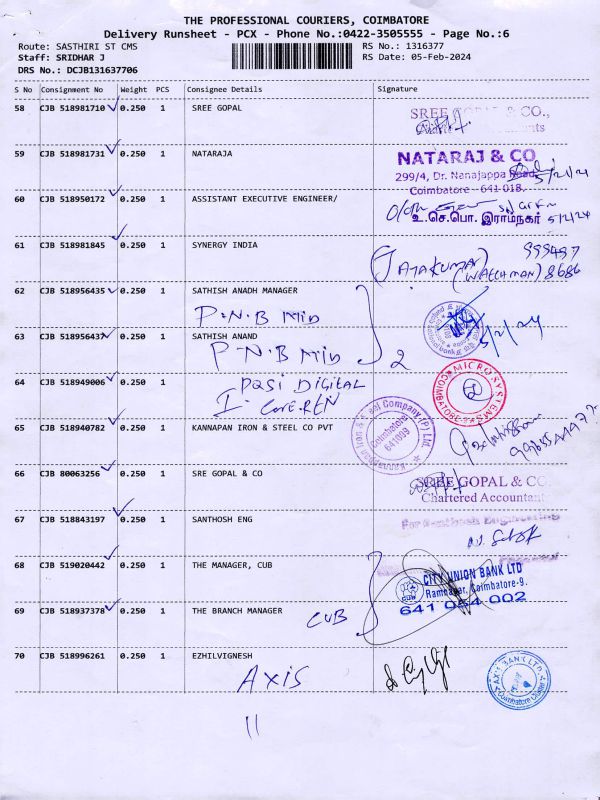 THE PROFESSIONAL COURIERS, COIMBATORE
Delivery Runsheet - PCX - Phone No.:0422-3505555 - Page No.:6
Route: SASTHIRI ST CMS
RS No.: 1316377
Staff: SRIDHAR J
RS Date: 05-Feb-2024
DRS No.: DCJB131637706
S No Consignment No Weight PCS Consignee Details Signature
58 CJB 518981710 0.250 1 SREE GOPAL
SREE GOPAL & CO.,
59 CJB 518981731 0.250 1 NATARAJA
NATARAJ & CO
299/4, Dr. Nanajappa Road,
Coimbatore - 641 018.
5/2/24
60 CJB 518950172 0.250 1 ASSISTANT EXECUTIVE ENGINEER/
உ.செ.பொ. இராம்நகர் 5/2/24
61 CJB 518981845 0.250 1 SYNERGY INDIA
JAYAKUMAR
(WATCHMAN) 8686
62 CJB 518956435 0.250 1 SATHISH ANADH MANAGER
P.N.B MID
63 CJB 518956437 0.250 1 SATHISH ANAND
P.N.B MID
2
5/2/24
64 CJB 518949006 1
PQSI DIGITAL
MICRO SYSTEMS
COIMBATORE-9
65 CJB 518940782 0.250 1 KANNAPAN IRON & STEEL CO PVT
Kannappan Iron & Steel Company (P) Ltd.
Coimbatore
641009
66 CJB 80063256 0.250 1 SRE GOPAL & CO
SREE GOPAL & CO
Chartered Accountants
67 CJB 518843197 0.250 1 SANTHOSH ENG
For Santhosh Engineering
68 CJB 519020442 0.250 1 THE MANAGER, CUB
CITY UNION BANK LTD
Ramnagar, Coimbatore-9.
641 054 002
69 CJB 518937378 0.250 1 THE BRANCH MANAGER
CUB
70 CJB 518996261 0.250 1 EZHILVIGNESH
AXIS
AXIS BANK LTD
Coimbatore